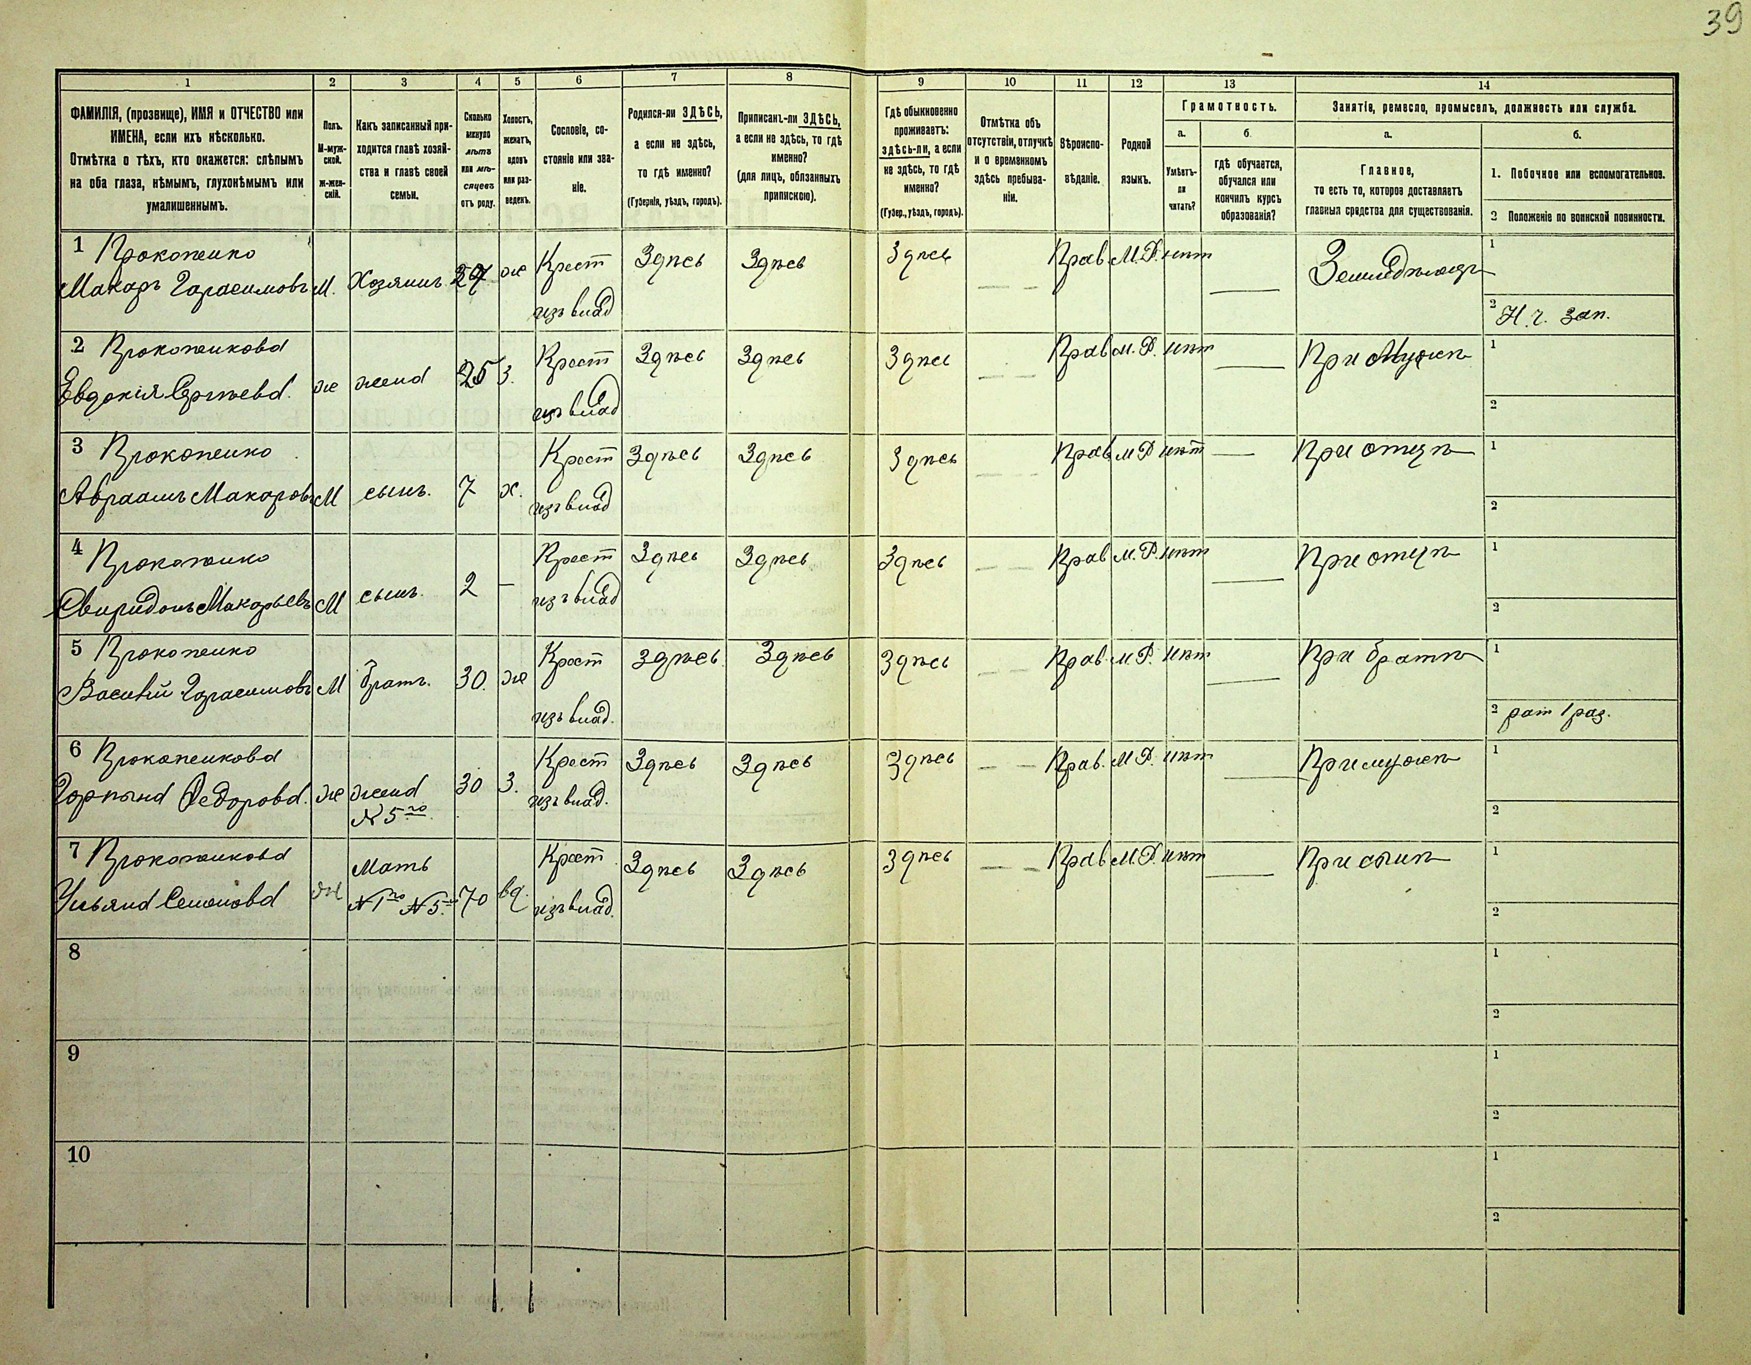 39
1 2 3 4 5 6 7 8 9 10 11 12 13 14
ФАМИЛІЯ, (прозвище), ИМЯ и ОТЧЕСТВО или
ИМЕНА, если ихъ нѣсколько.
Отмѣтка о тѣхъ, кто окажется: слѣпымъ
на оба глаза, нѣмымъ, глухонѣмымъ или
умалишеннымъ.
Полъ.
М-муж-
ской.
ж-жен-
скій.
Какъ записанный при-
ходится главѣ хозяй-
ства и главѣ своей
семьи.
Сколько
минуло
лѣтъ
или мѣ-
сяцевъ
отъ роду.
Холостъ,
женатъ,
вдовъ
или раз-
веденъ.
Сословіе, со-
стояніе или зва-
ніе.
Родился-ли ЗДѢСЬ,
а если не здѣсь,
то гдѣ именно?
(Губернія, уѣздъ, городъ).
Приписанъ-ли ЗДѢСЬ,
а если не здѣсь, то гдѣ
именно?
(для лицъ, обязанныхъ
припискою).
Гдѣ обыкновенно
проживаетъ:
здѣсь-ли, а если
не здѣсь, то гдѣ
именно?
(Губер., уѣздъ, городъ).
Отмѣтка объ
отсутствіи, отлучкѣ
и о временномъ
здѣсь пребыва-
ніи.
Вѣроиспо-
вѣданіе.
Родной
языкъ.
Грамотность.
а.
Умѣетъ-
ли
читать?
б
гдѣ обучается,
обучался или
кончилъ курсъ
образованія?
Занятіе, ремесло, промыселъ, должность или служба.
а.
Главное,
то есть то, которое доставляетъ
главныя средства для существованія.
б.
1. Побочное или вспомогательное.
2 Положеніе по воинской повинности.
1 Прокопенко
Макаръ Гарасимовъ М. Хозяинъ 27 же Крест
изъ влад
Здѣсь Здѣсь Здѣсь Прав М.Р. нѣт — Земледѣлецъ 1
2 Н. ч. зап.
2 Прокопенкова
Евдокія Сергѣева. же жена 25 З. Крест
изъ влад
Здѣсь Здѣсь Здѣсь — — Прав М.Р. нѣт — При мужѣ 1
2
3 Прокопенко
Авраамъ Макаровъ М сынъ. 7 х. Крест
изъ влад
Здѣсь Здѣсь Здѣсь — — Прав М Р нѣт — При отцѣ 1
2
4 Прокопенко
Свиридонъ Макарьевъ М сынъ. 2 — Крест
изъ влад
Здѣсь Здѣсь Здѣсь — — Прав М.Р. нѣт — При отцѣ 1
2
5 Прокопенко
Василій Гарасимовъ М братъ. 30. же Крест
изъ влад.
Здѣсь Здѣсь Здѣсь — — Прав. М Р. нѣт — При братѣ 1
2 рат 1 раз.
6 Прокопенкова
Горпына Федорова. же жена
N 5го
30 З. Крест
изъ влад.
Здѣсь Здѣсь Здѣсь — — Прав. М Р. нѣт — При мужѣ 1
2
7 Прокопенкова
Ульяна Семенова ж Мать
N 1го N 5го
70 вд. Крест
изъ влад.
Здѣсь Здѣсь Здѣсь — — Прав М.Р. нѣт — При сынѣ 1
2
8 1
2
9 1
2
10 1
2